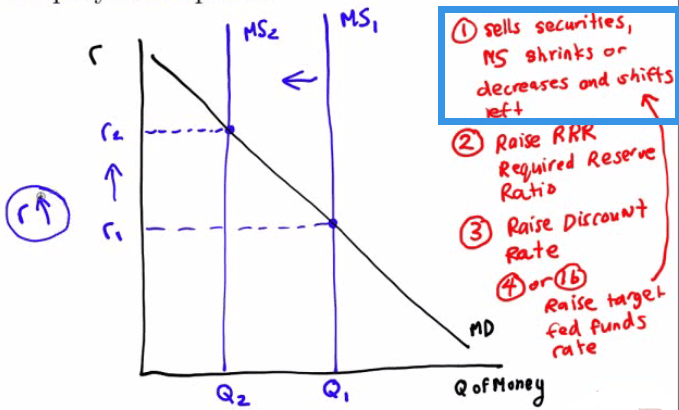 MS₂
MS₁
r
r₂
r₁
r↑
MD
Q₂
Q₁
Q of Money
① sells securities,
MS shrinks or
decreases and shifts
left
② Raise RRR
Required Reserve
Ratio
③ Raise Discount
Rate
④ or 1b
Raise target
fed funds
rate